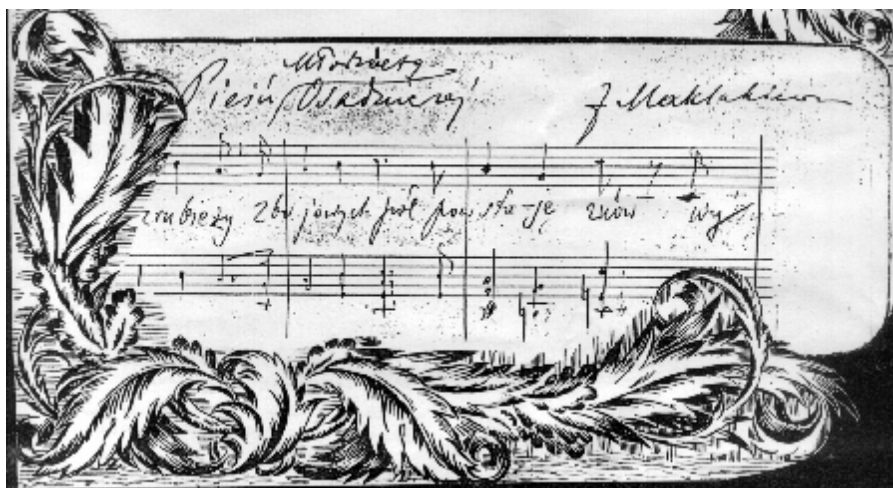 Młodzieży
Pieśń Osadniczej
J Maklakiewicz
z rubieży zbrojnych pól powstaje znów wy